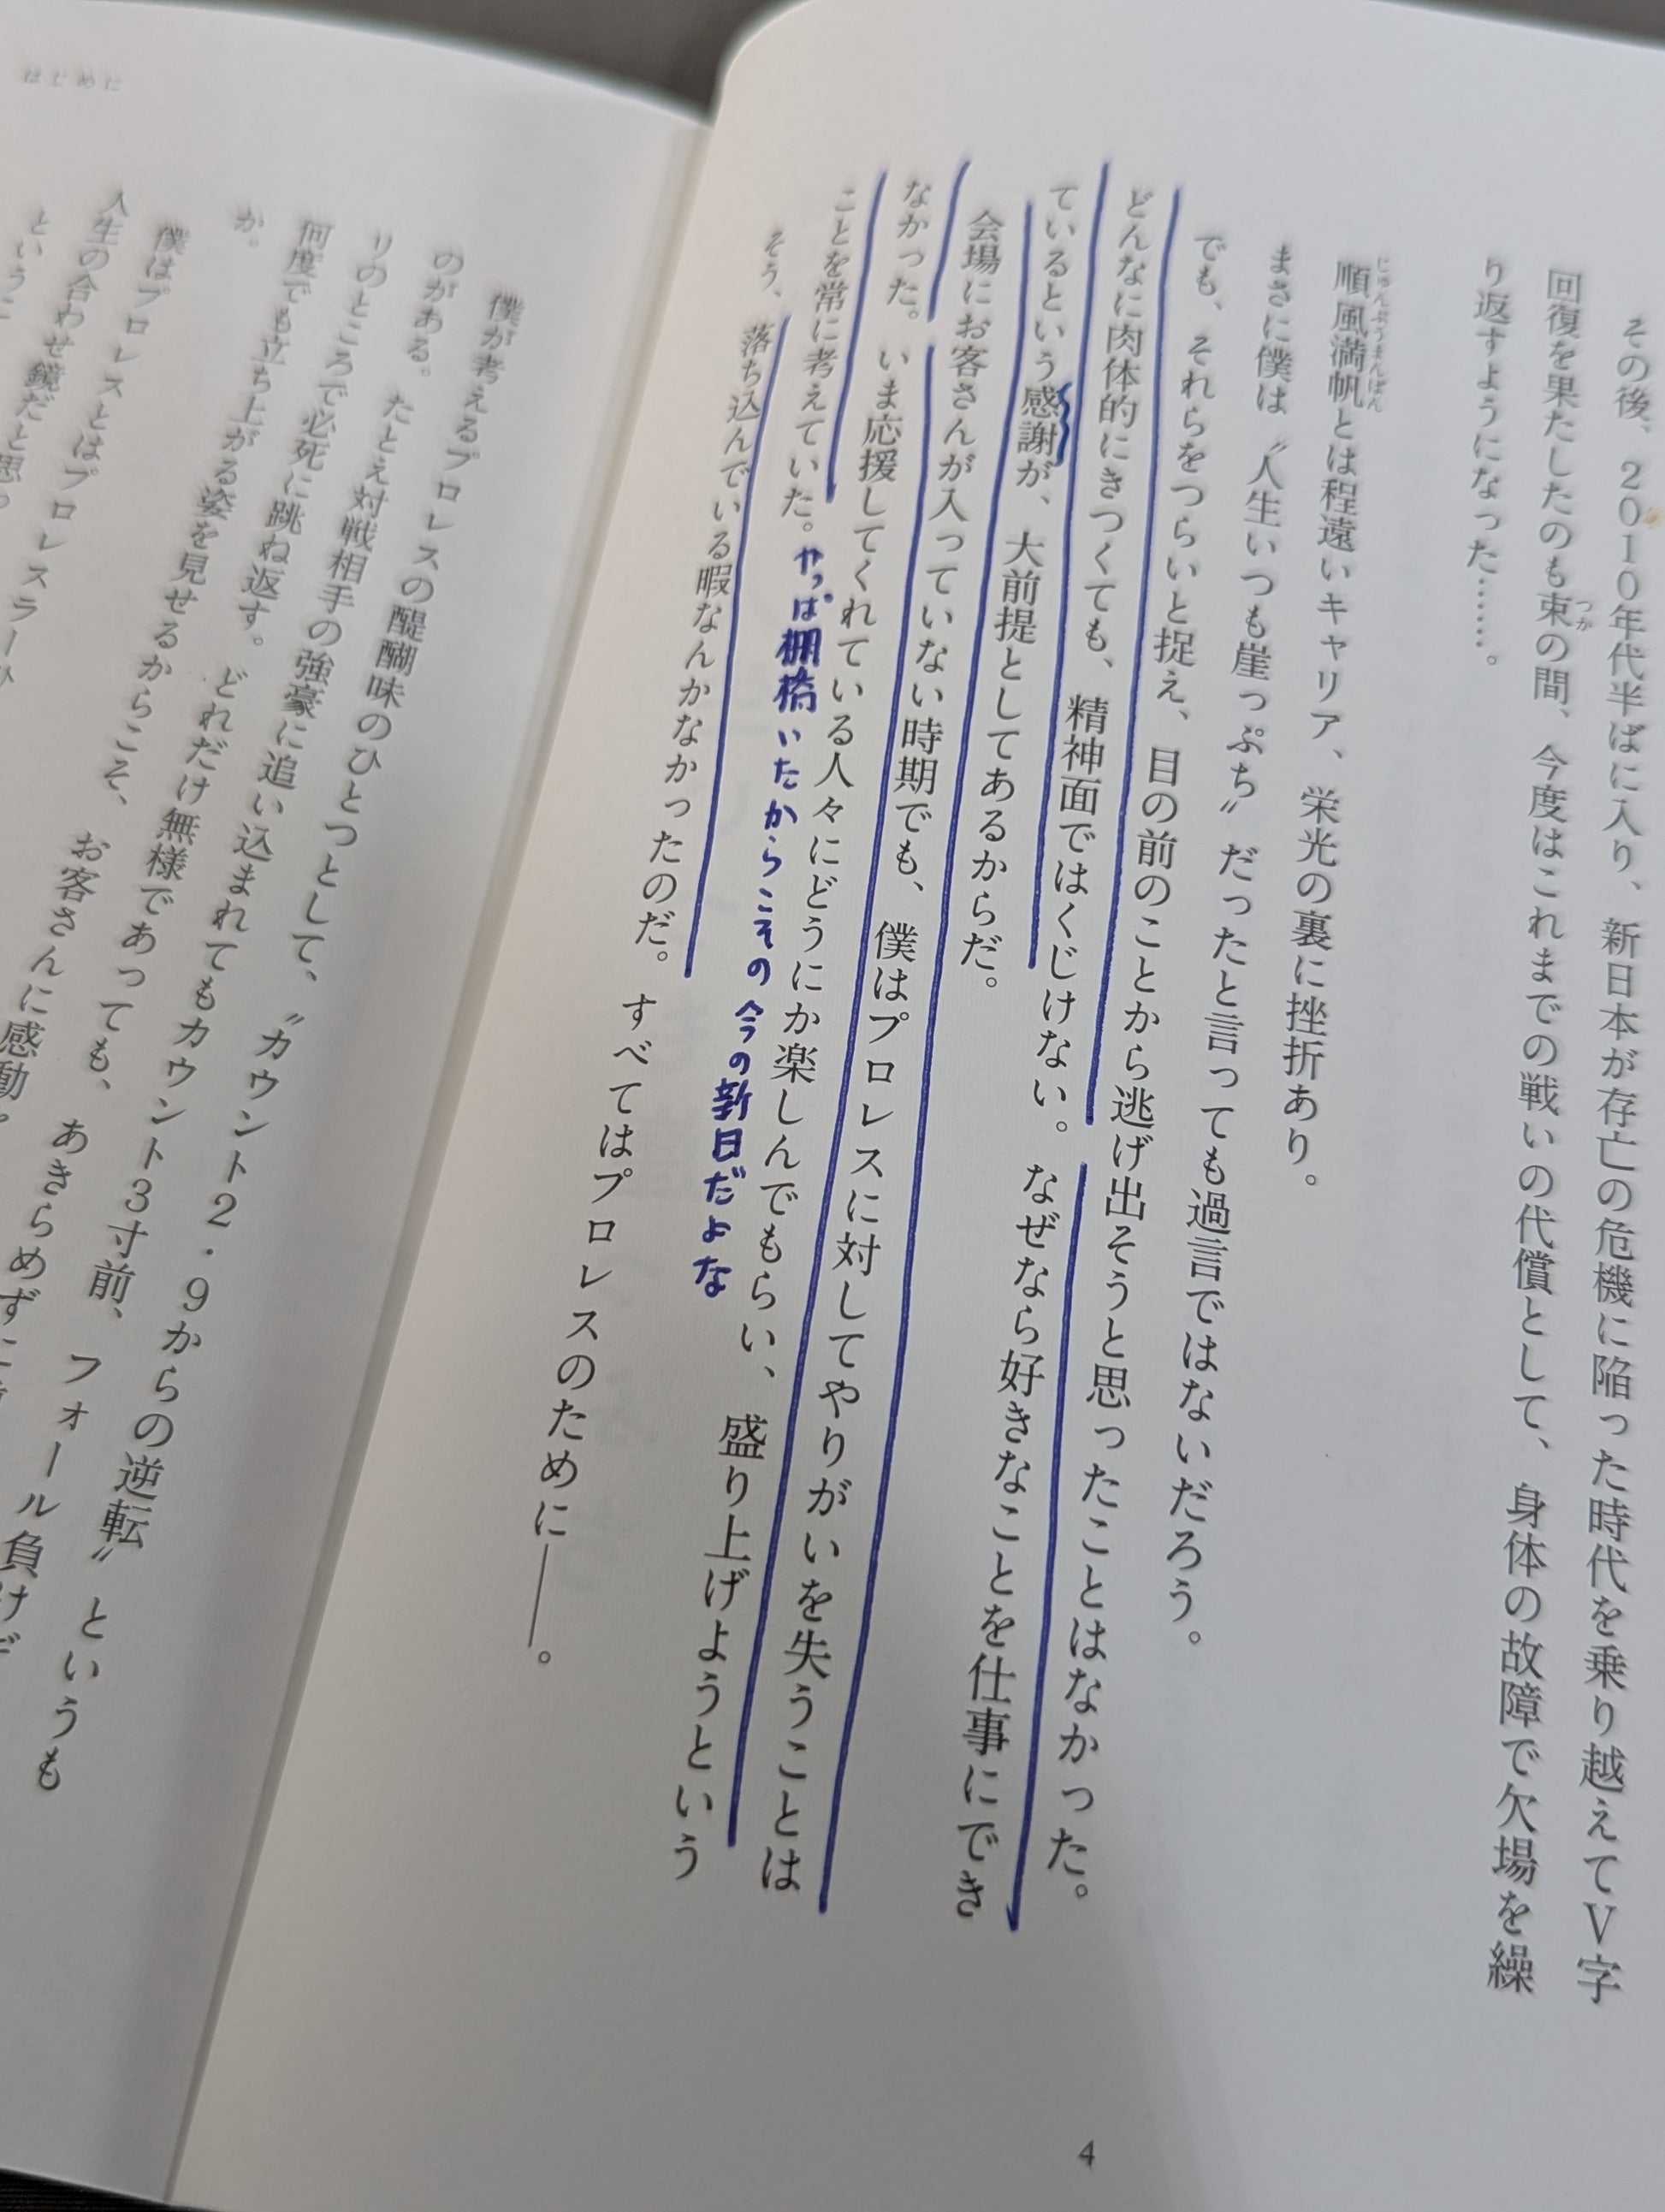 その後、2010年代半ばに入り、新日本が存亡の危機に陥った時代を乗り越えてV字
回復を果たしたのも束の間、今度はこれまでの戦いの代償として、身体の故障で欠場を繰
つか
り返すようになった……。
順風満帆とは程遠いキャリア、栄光の裏に挫折あり。
じゅんぷうまんぱん
まさに僕は〝人生いつも崖っぷち〟だったと言っても過言ではないだろう。
でも、それらをつらいと捉え、目の前のことから逃げ出そうと思ったことはなかった。
どんなに肉体的にきつくても、精神面ではくじけない。なぜなら好きなことを仕事にでき
ているという感謝が、大前提としてあるからだ。
会場にお客さんが入っていない時期でも、僕はプロレスに対してやりがいを失うことは
なかった。いま応援してくれている人々にどうにか楽しんでもらい、盛り上げようという
ことを常に考えていた。
やっぱ棚橋いたからこその今の新日だよな
そう、落ち込んでいる暇なんかなかったのだ。すべてはプロレスのために――。
4
はじめに
僕が考えるプロレスの醍醐味のひとつとして、〝カウント2・9からの逆転〟というも
のがある。たとえ対戦相手の強豪に追い込まれてもカウント3寸前、フォール負けだ
リのところで必死に跳ね返す。どれだけ無様であっても、あきらめずに
何度でも立ち上がる姿を見せるからこそ、お客さんに感動
か。
僕はプロレスとはプロレスラー
人生の合わせ鏡だと思っ
という